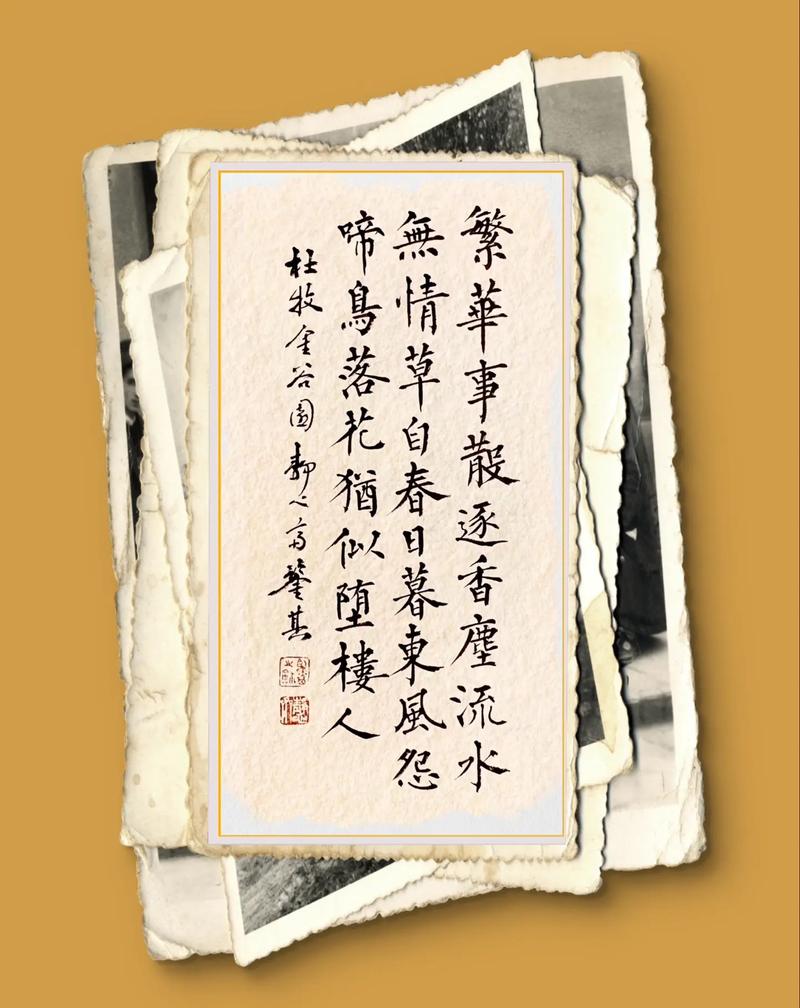 繁華事散逐香塵流水
無情草自春日暮東風怨
啼鳥落花猶似墮樓人
杜牧金谷園靜心高馨其